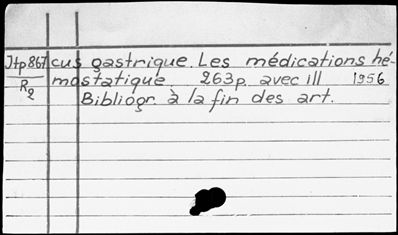 Itp867 cus gastrique. Les médications hé-
R2 mostatique 263p. avec ill 1956
Bibliogr. à la fin des art.